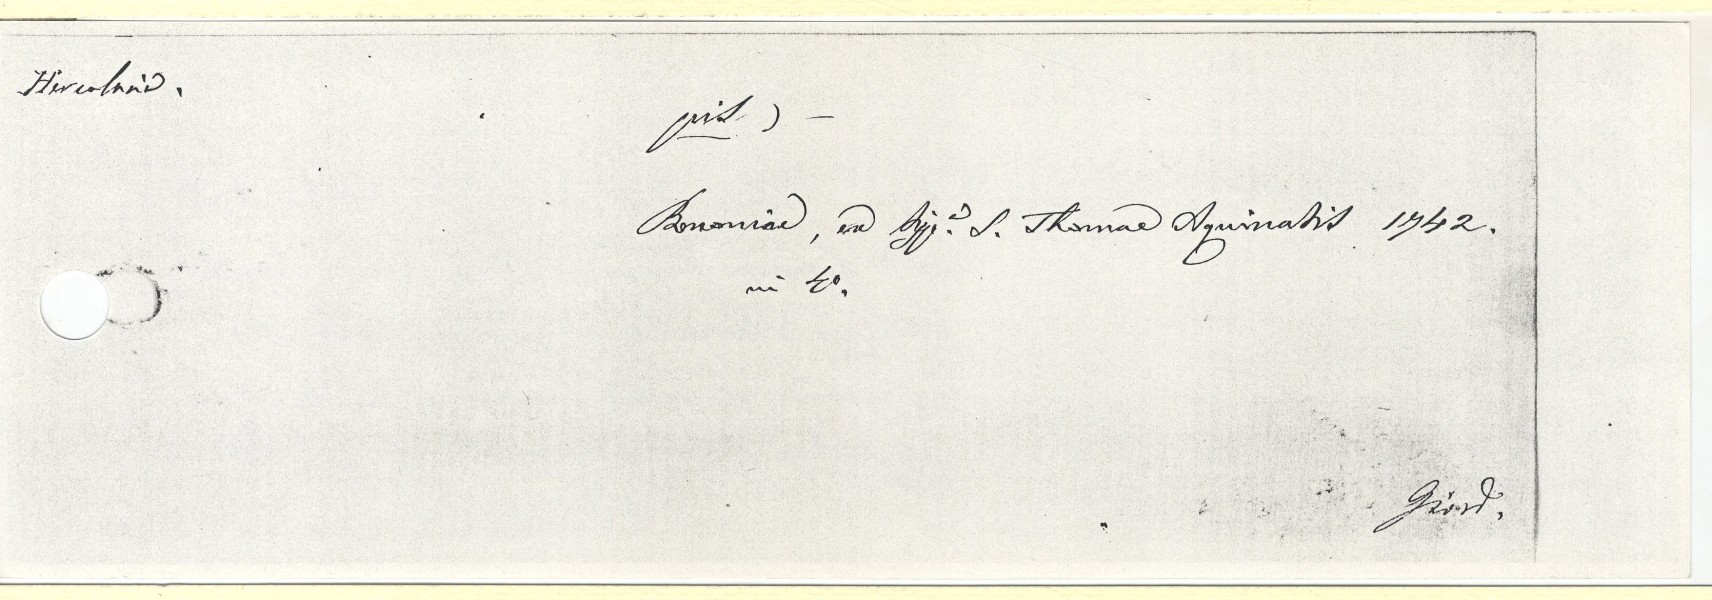 Hercolani.
pit) –
Bononiae, ex typ.ᵃ S. Thomae Aquinatis 1742.
in 4º.
Giord.